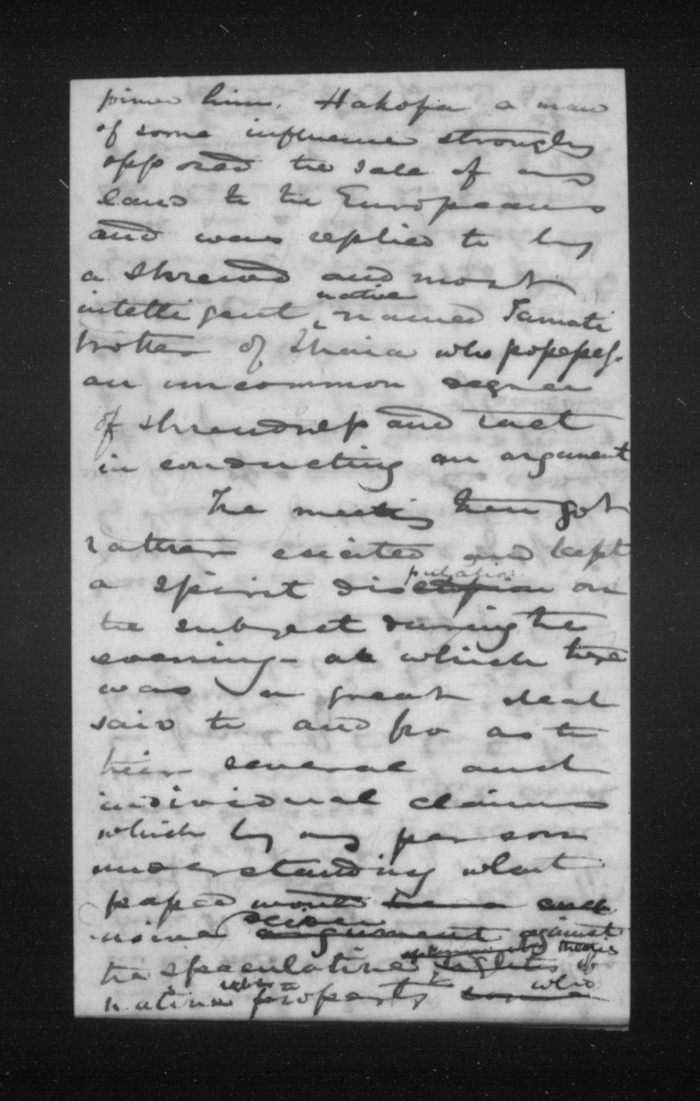 him. Hakopa a man
of some influence strongly
opposed the sale of any
land to the Europeans
and was replied to by
a shrewd and most
intelligent native named Tamati
brother of who possess.
an uncommon degree
of shrewdness and tact
in conducting an argument
The meeting then got
rather excited and kept
a spirit dis on
the subject during the
evening - at which there
was a great deal
said to and fro as to
their several and
individual claims
which by any person
understanding what
passed would be a
argument against
the speculative rights of
native property to who